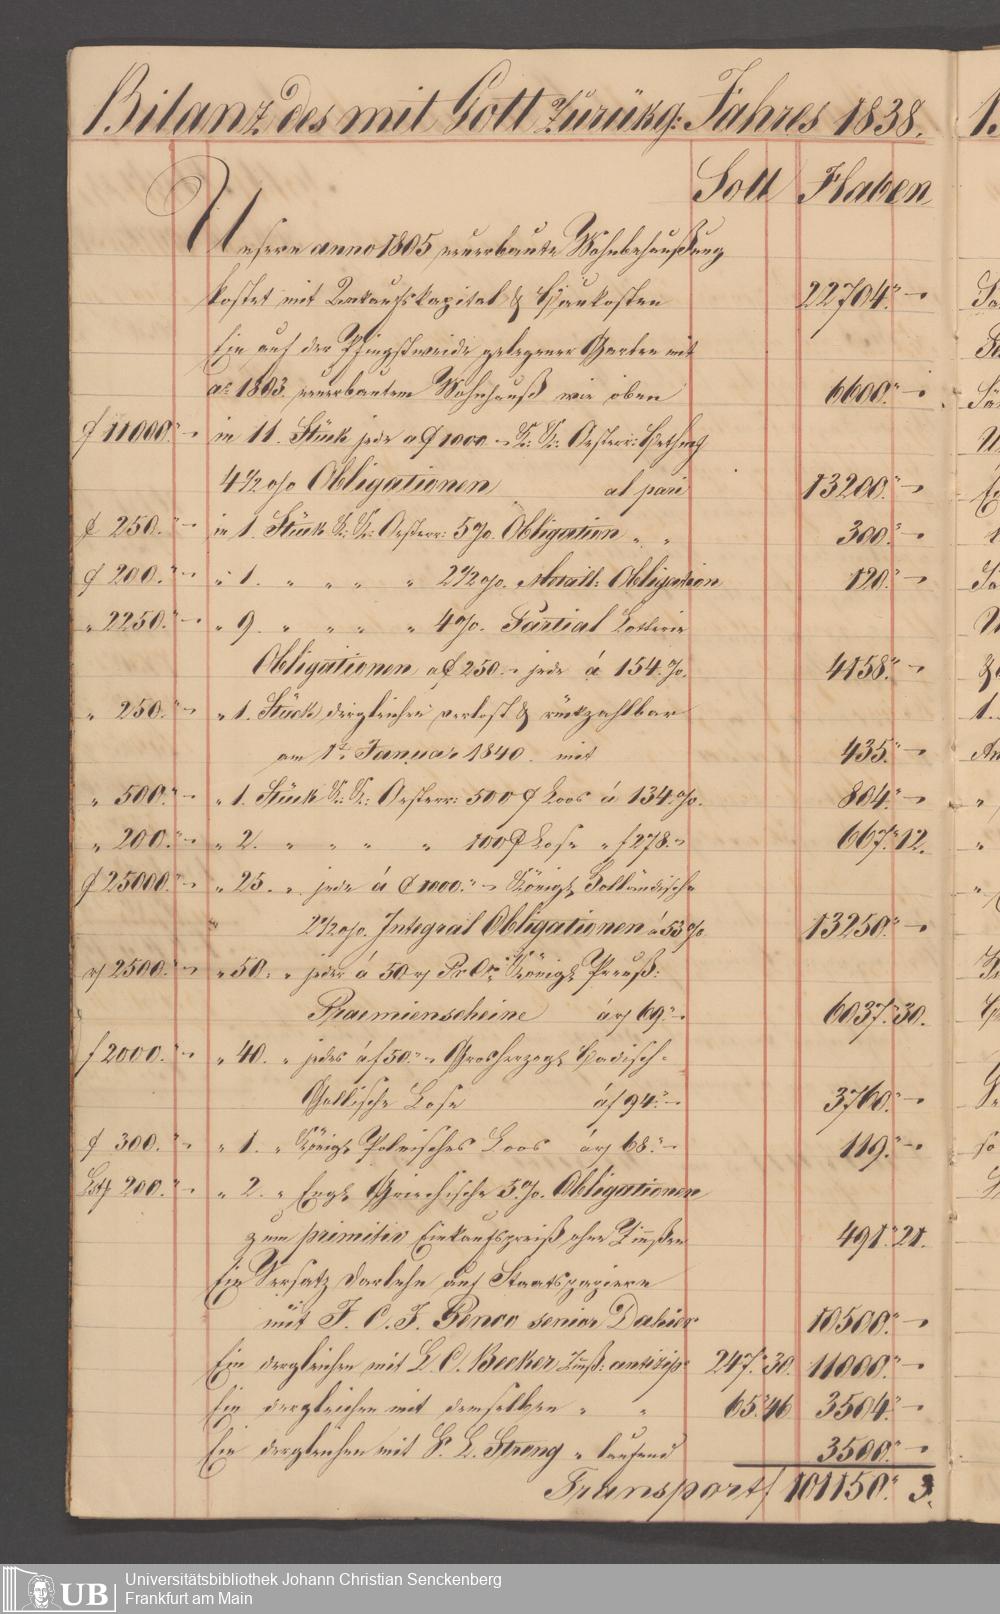 Bilanz des mit Gott Zurükg: Jahres 1838.
Soll Haben
Unsere anno 1805 neuerbaute Wohnbehaußung
kostet mit Einkaufskapital & Baukosten 22704.„ –
Ein auf der Pfingstweide gelegener Garten mit
ao 1803. neuerbautem Wohnhauß wie oben 6600.„ –
f 11000.„ – in 11. Stück jede a f 1000 – K: K: Oesterr: Bethm
4 1/2 o/o Obligationen al pari 13200.„ –
f 250.„ – in 1. Stück K: K: Oesterr: 5 %. Obligation „ „ 300.„ –
f 200.„ – „ 1. „ „ „ „ 2 1/2 o/o. Obligation 120.„ –
„ 2250.„ – „ 9. „ „ „ „ 4 %. Partial Lotterie
Obligationen a f 250. – jede á 154. %. 4158.„ –
„ 250.„ – „ 1. Stück dergleichen verlost & rückzahlbar
am 1t. Januar 1840. mit 435.„ –
„ 500.„ – „ 1. Stück K: K: Oesterr: 500 f Loos á 134. %. 804.„ –
„ 200.„ – „ 2. „ „ „ „ 100 f Lose „ f 278.„ – 667.„ 12.
f 25000.„ – „ 25. „ jede á f 1000.„ – Königl. Holländische
2 1/2 o/o. Integral Obligationen á 53 % 13250.„ –
rf 2500.„ – „ 50. „ jeder á 50 rf Pr Ct Königl. Preuß:
Praemienscheine á rf 69.„ – 6037.„ 30.
f 2000.„ – „ 40. „ jedes á f 50.„ – Grosherzogl. Badisch-
Gollische Lose á f 94.„ – 3760.„ –
f 300.„ – „ 1. „ Königl. Polnisches Loos á rf 68.„ – 119.„ –
Lstf 200.„ – „ 2. „ Engl. Griechische 5 %. Obligationen
zum primitiv Einkaufspreiß ohne Zinßen 491.„ 21.
Ein Versatz Darlehn auf Staatspapiere
mit J. C. J. senior Dahier 10500.„ –
Ein dergleichen mit L. C. Becker Zinß: antizip: 247.„ 30. 11000.„ –
Ein dergleichen mit demselben „ „ 65.„ 46 3504.„ –
Ein dergleichen mit P. L. Streng „ laufend 3500.„ –
Transport f 101150.„ 3.
UB
Universitätsbibliothek Johann Christian Senckenberg
Frankfurt am Main